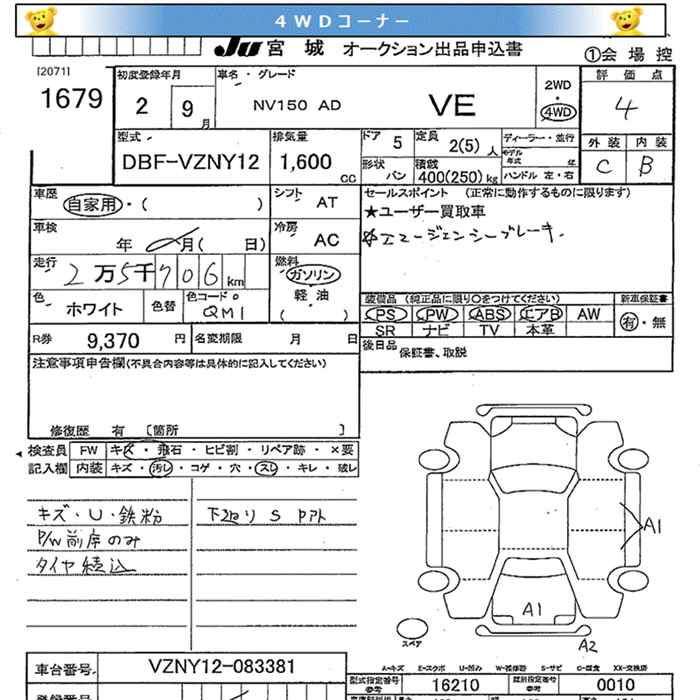 ４ＷＤコーナー
JU 宮城 オークション出品申込書
①会場控
[2071]
1679
初度登録年月
2 9月
車名・グレード
NV150 AD VE
2WD
・
4WD
評価点
4
外装 内装
C B
型式
DBF-VZNY12
排気量
1,600 cc
ドア 5
定員 2(5)人
形状 バン
積載 400(250)kg
ディーラー・並行
モデル年式 年
ハンドル 左・右
車歴 自家用・( )
シフト AT
セールスポイント (正常に動作するものに限ります)
★ユーザー買取車
エマージェンシーブレーキ.
車検 年 月( 日)
冷房 AC
走行 2万5千706km
燃料 ガソリン
軽・油
( )
色 ホワイト
色替
色コード QM1
装備品 (純正品に限り○をつけてください)
PS PW ABS エアB AW
SR ナビ TV 本革
新車保証書
有・無
R券 9,370円
名変期限 月 日
後日品 保証書、取説
注意事項申告欄(不具合内容等は具体的に記入してください)
修復歴 有 〔箇所 〕
検査員記入欄
FW キズ・飛石・ヒビ割・リペア跡・×要
内装 キズ・汚レ・コゲ・穴・スレ・キレ・破レ
キズ・U・鉄粉
P/W前席のみ
タイヤ積込
下廻り S
A1
A1
A2
スペア
A-キズ E-エクボ U-凹み W-補修跡 S-サビ C-腐食 XX-交換済
車台番号 VZNY12-083381
型式指定番号 参考 16210
類別指定番号 参考 0010